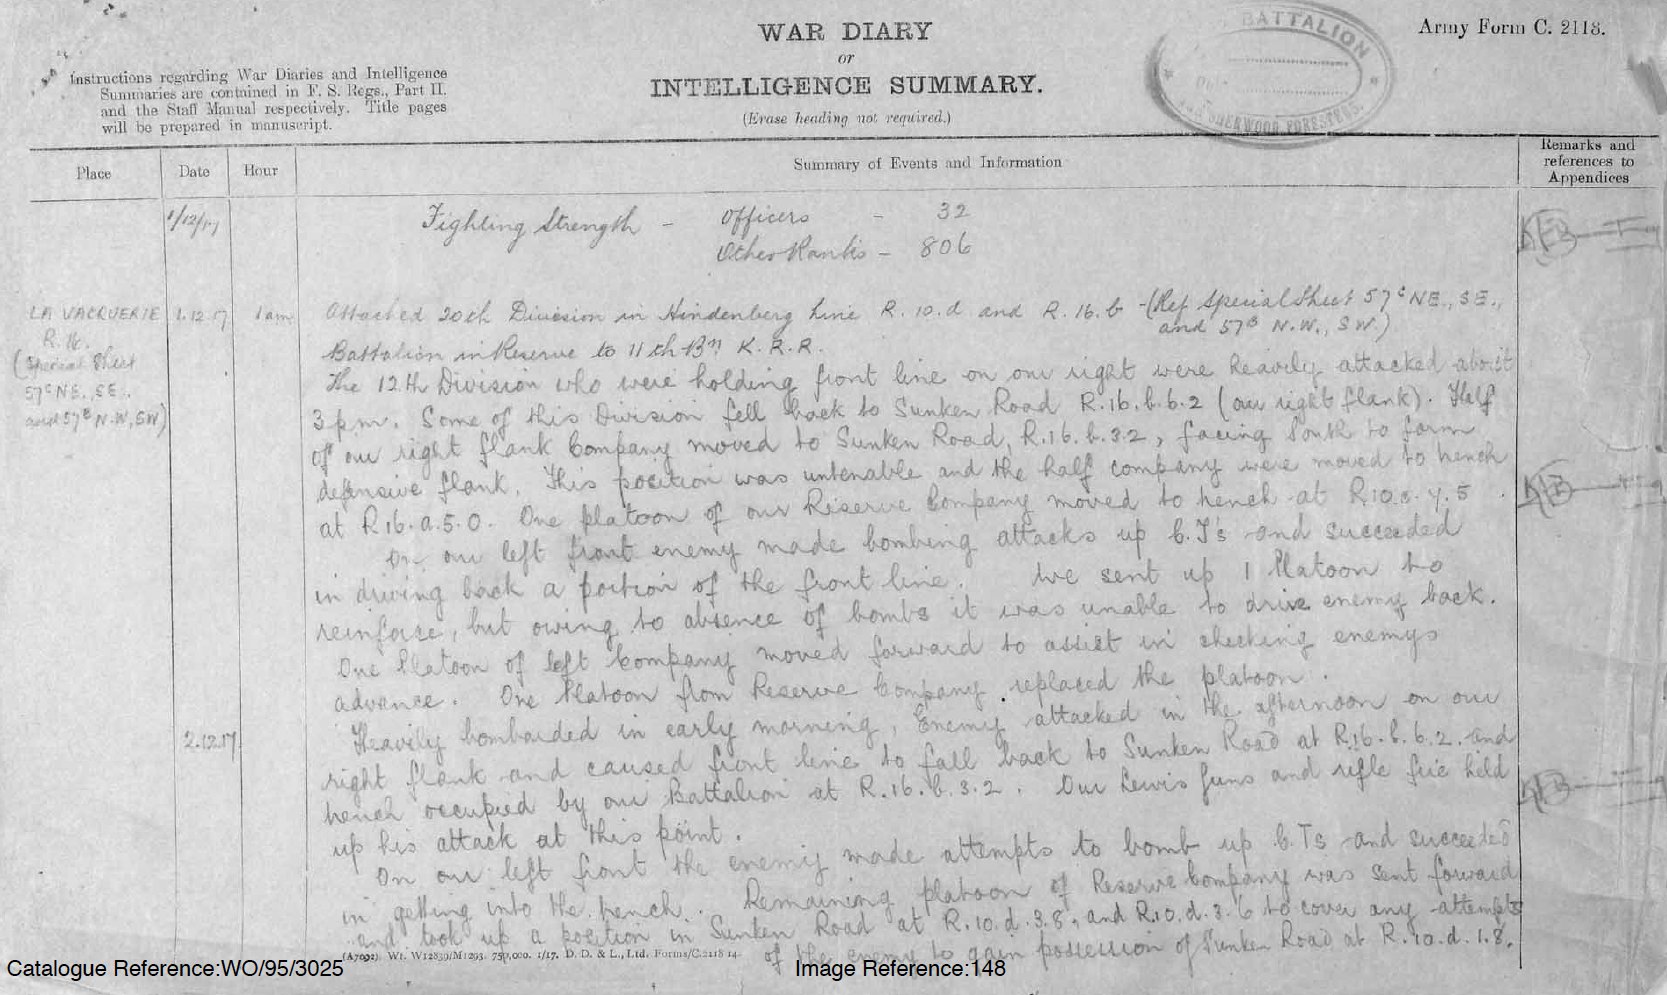 WAR DIARY
or
INTELLIGENCE SUMMARY.
(Erase heading not required.)
Army Form C. 2118.
BATTALION
SHERWOOD FORESTERS.
Instructions regarding War Diaries and Intelligence
Summaries are contained in F. S. Regs., Part II.
and the Staff Manual respectively. Title pages
will be prepared in manuscript.
Place
Date
Hour
Summary of Events and Information
Remarks and
references to
Appendices
1/12/17
Fighting Strength - Officers - 32
Other Ranks - 806
LA VACQUERIE
R.16.
(Special Sheet
57c NE., SE.,
and 57B N.W, SW)
1.12.17
1am
Attached 20th Division in Hindenberg Line R.10.d and R.16.b - (Ref Special Sheet 57c NE., SE.,
and 57B N.W., SW.)
Battalion in Reserve to 11th Bn K.R.R.
The 12th Division who were holding front line on our right were heavily attacked about
3pm. Some of this Division fell back to Sunken Road R.16.b.6.2 (our right flank). Half
of our right flank Company moved to Sunken Road, R.16.b.3.2, facing South to form
defensive flank. This position was untenable and the half company were moved to trench
at R16.a.5.0. One platoon of our Reserve Company moved to trench at R10.c.7.5.
On our left front enemy made bombing attacks up C.T's and succeeded
in driving back a portion of the front line. We sent up 1 Platoon to
reinforce, but owing to absence of bombs it was unable to drive enemy back.
One Platoon of left Company moved forward to assist in checking enemys
advance. One Platoon from Reserve Company replaced the platoon.
2.12.17
Heavily bombarded in early morning, Enemy attacked in the afternoon on our
right flank and caused front line to fall back to Sunken Road at R.16.b.6.2. and
trench occupied by our Battalion at R.16.b.3.2. Our Lewis guns and rifle fire held
up his attack at this point.
On our left front the enemy made attempts to bomb up C.Ts and succeeded
in getting into the trench. Remaining platoon of Reserve Company was sent forward
and took up a position in Sunken Road at R.10.d.3.8, and R.10.d.3.6 to cover any attempts
of the enemy to gain possession of Sunken Road at R.10.d.1.8.
(A7092). Wt. W12839/M1293. 750,000. 1/17. D. D. & L., Ltd. Forms/C.2118 14.
Catalogue Reference:WO/95/3025
Image Reference:148